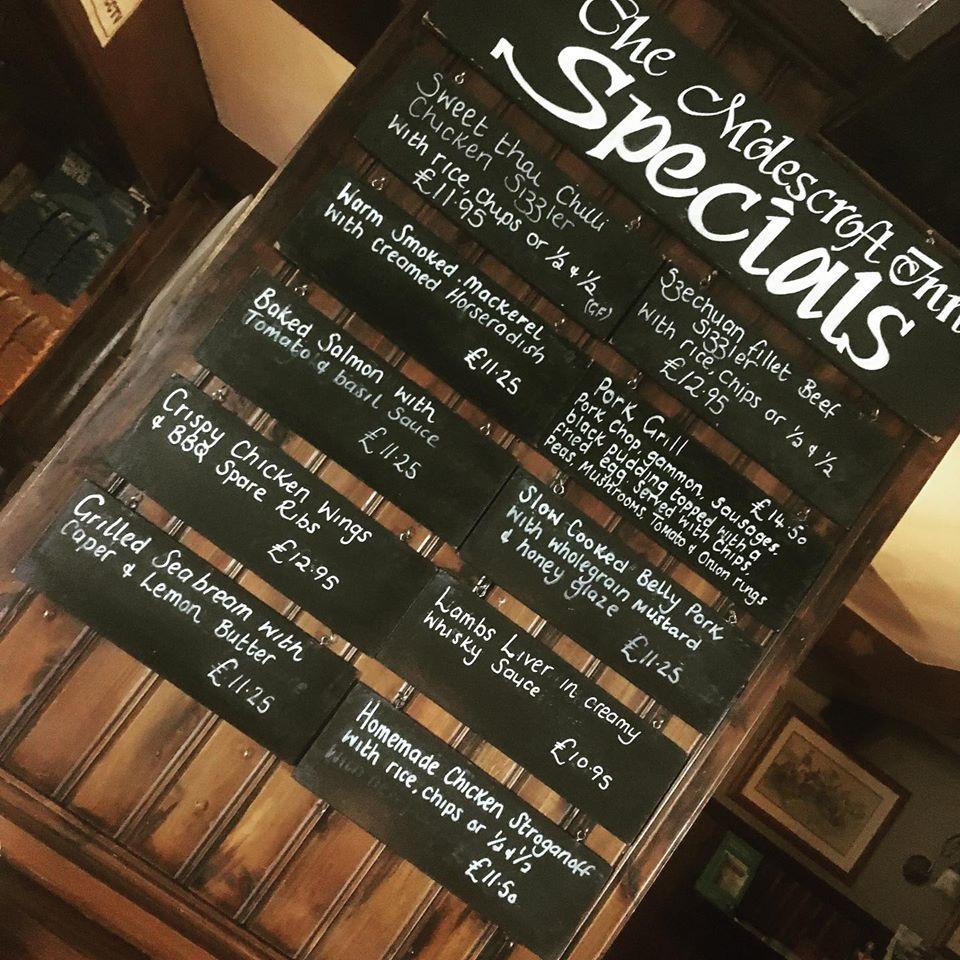 CCTV
The Molescroft Inn
Specials
Sweet thai Chilli
Chicken Sizzler
With rice, chips or ½ & ½
£11.95
(GF)
Warm Smoked Mackerel
With creamed Horseradish
£11.25
Baked Salmon with
Tomato & basil Sauce
£11.25
Crispy Chicken Wings
& BBQ Spare Ribs
£12.95
Grilled Seabream with
Caper & Lemon Butter
£11.25
Szechuan fillet Beef
Sizzler
With rice, chips or ½ & ½
£12.95
Pork Grill £14.50
Pork, Chop, gammon, Sausages,
black pudding topped with a
fried egg. Served with Chips
Peas Mushrooms Tomato & Onion rings
Slow Cooked Belly Pork
With wholegrain mustard
& honey glaze
£11.25
Lambs Liver in creamy
Whisky Sauce
£10.95
Homemade Chicken Stroganoff
With rice, chips or ½ & ½
£11.50